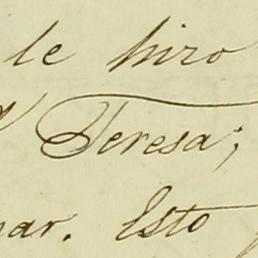 le hiro
Teresa;
nar. Esto